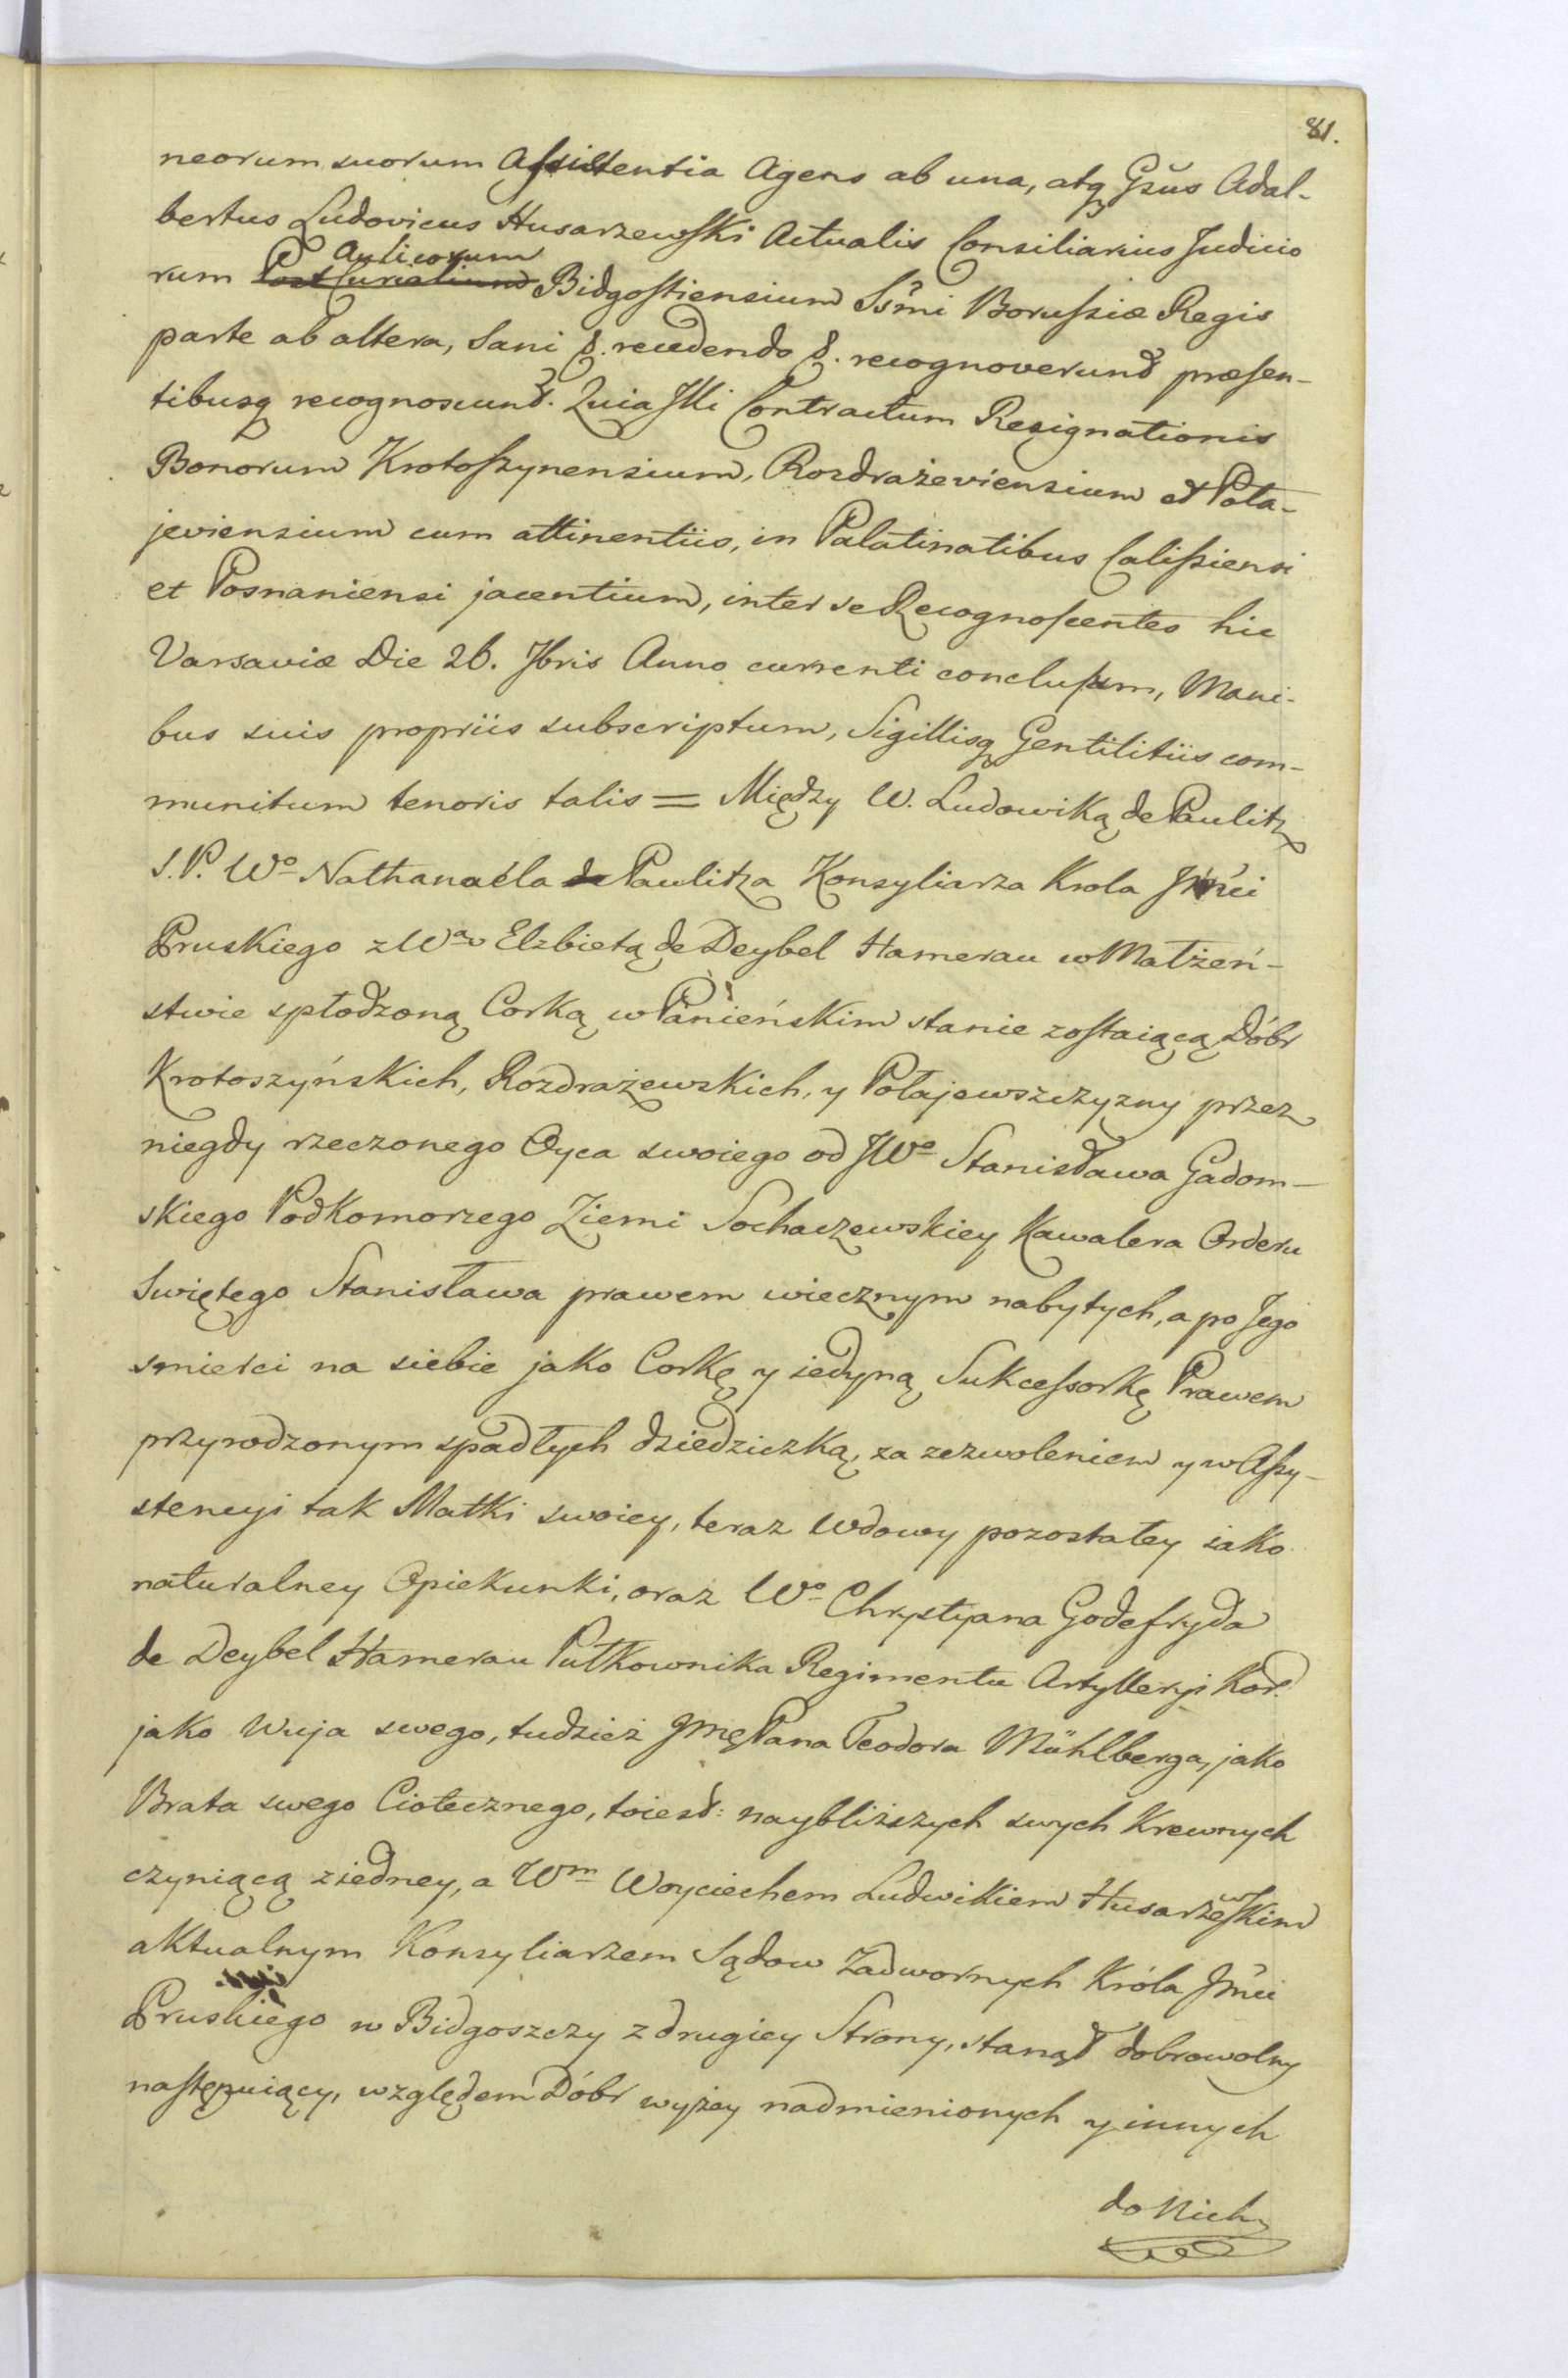 81.
neorum suorum Assistentia Agens ab una, atq Gsus Adal-
bertus Ludovicus Husarzewski Actualis Consiliarius Judicio
Aulicorum
rum Post Curialium Bidgostiensium Ssmi Borussiæ Regis
parte ab altera, Sani &. recedendo &. recognoverund præsen-
tibusq recognoscund. Quia Illi Contractum Resignationis
Bonorum Krotoszynensium, Rozdrażeviensium et Pola-
jeviensium cum attinentiis, in Palatinatibus Calissiensi
et Posnaniensi jacentium, inter se Recognoscentes hic
Varsaviæ Die 26. Jbris Anno currenti conclusum, Mani-
bus suis propriis subscriptum, Sigillisq Gentilitiis com-
munitum tenoris talis = Między W. Ludowiką de Paulitz
S.P. Wo Nathanaéla de Paulitza Konsyliarza Krola Jmci
Pruskiego z Wą Elzbietą de Deybel Hamerau w Małżeń-
stwie spłodzoną Corką w Panieńskim stanie zostaiącą Dóbr
Krotoszyńskich, Rozdrażewskich, y Połajewszczyzny przez
niegdy rzeczonego Oyca swoiego od JWo Stanisława Gadom-
skiego Podkomorzego Ziemi Sochaczewskiey Kawalera Orderu
Swiętego Stanisława prawem wiecznym nabytych, a po Jego
smierci na siebie jako Corkę y iedyną Sukcessorkę Prawem
przyrodzonym spadłych dziedziczką, za zezwoleniem y w Assy-
stencyi tak Matki swoiey, teraz Wdowy pozostałey iako
naturalney Opiekunki, oraz Wo Chrystyana Godefryda
de Deybel Hamerau Pułkownika Regimentu Artylleryi Kor.
jako Wuja swego, tudzież Jmę Pana Teodora Mühlberga, jako
Brata swego Ciotecznego, toiest: naybliższych swych Krewnych
czyniącą z iedney, a Wm Woyciechem Ludwikiem Husarzewskim
aktualnym Konsyliarzem Sądow Zadwornych Króla Jmci
Pruskiego w Bidgoszczy z drugiey Strony, stanął dobrowolny
następuiący, względem Dóbr wyżey nadmienionych y innych
do Nich